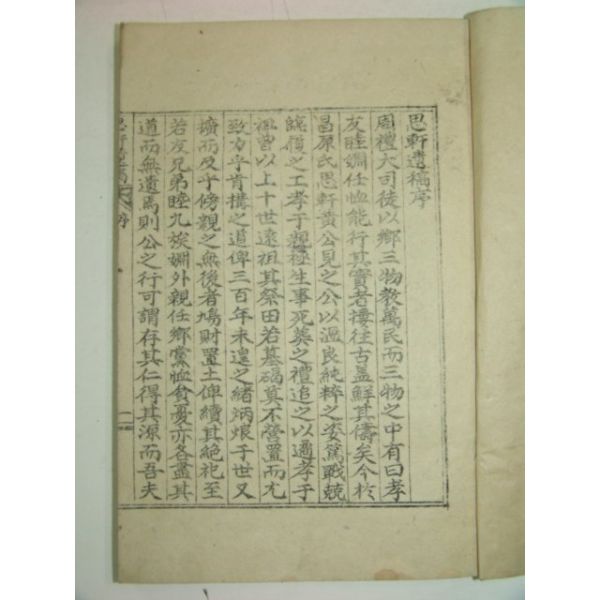 思軒遺稿序
周禮大司徒以鄕三物敎萬民而三物之中有曰孝
友睦婣任恤能行其實者摟往古盖鮮其儔矣今於
昌原氏思軒黃公見之公以溫良純粹之姿篤戰兢
臨履之工孝于親極生事死葬之禮追之以適孝于
祖曾以上十世遠祖其祭田若墓碣莫不營置而尤
致力乎肯構之道俾三百年未遑之緖炳烺于世又
擴而及乎傍親之無後者鳩財置土俾續其絶祀至
若友兄弟睦九族婣外親任鄕黨恤貧憂亦各盡其
道而無遺焉則公之行可謂存其仁得其源而吾夫
思軒遺稿 序 一